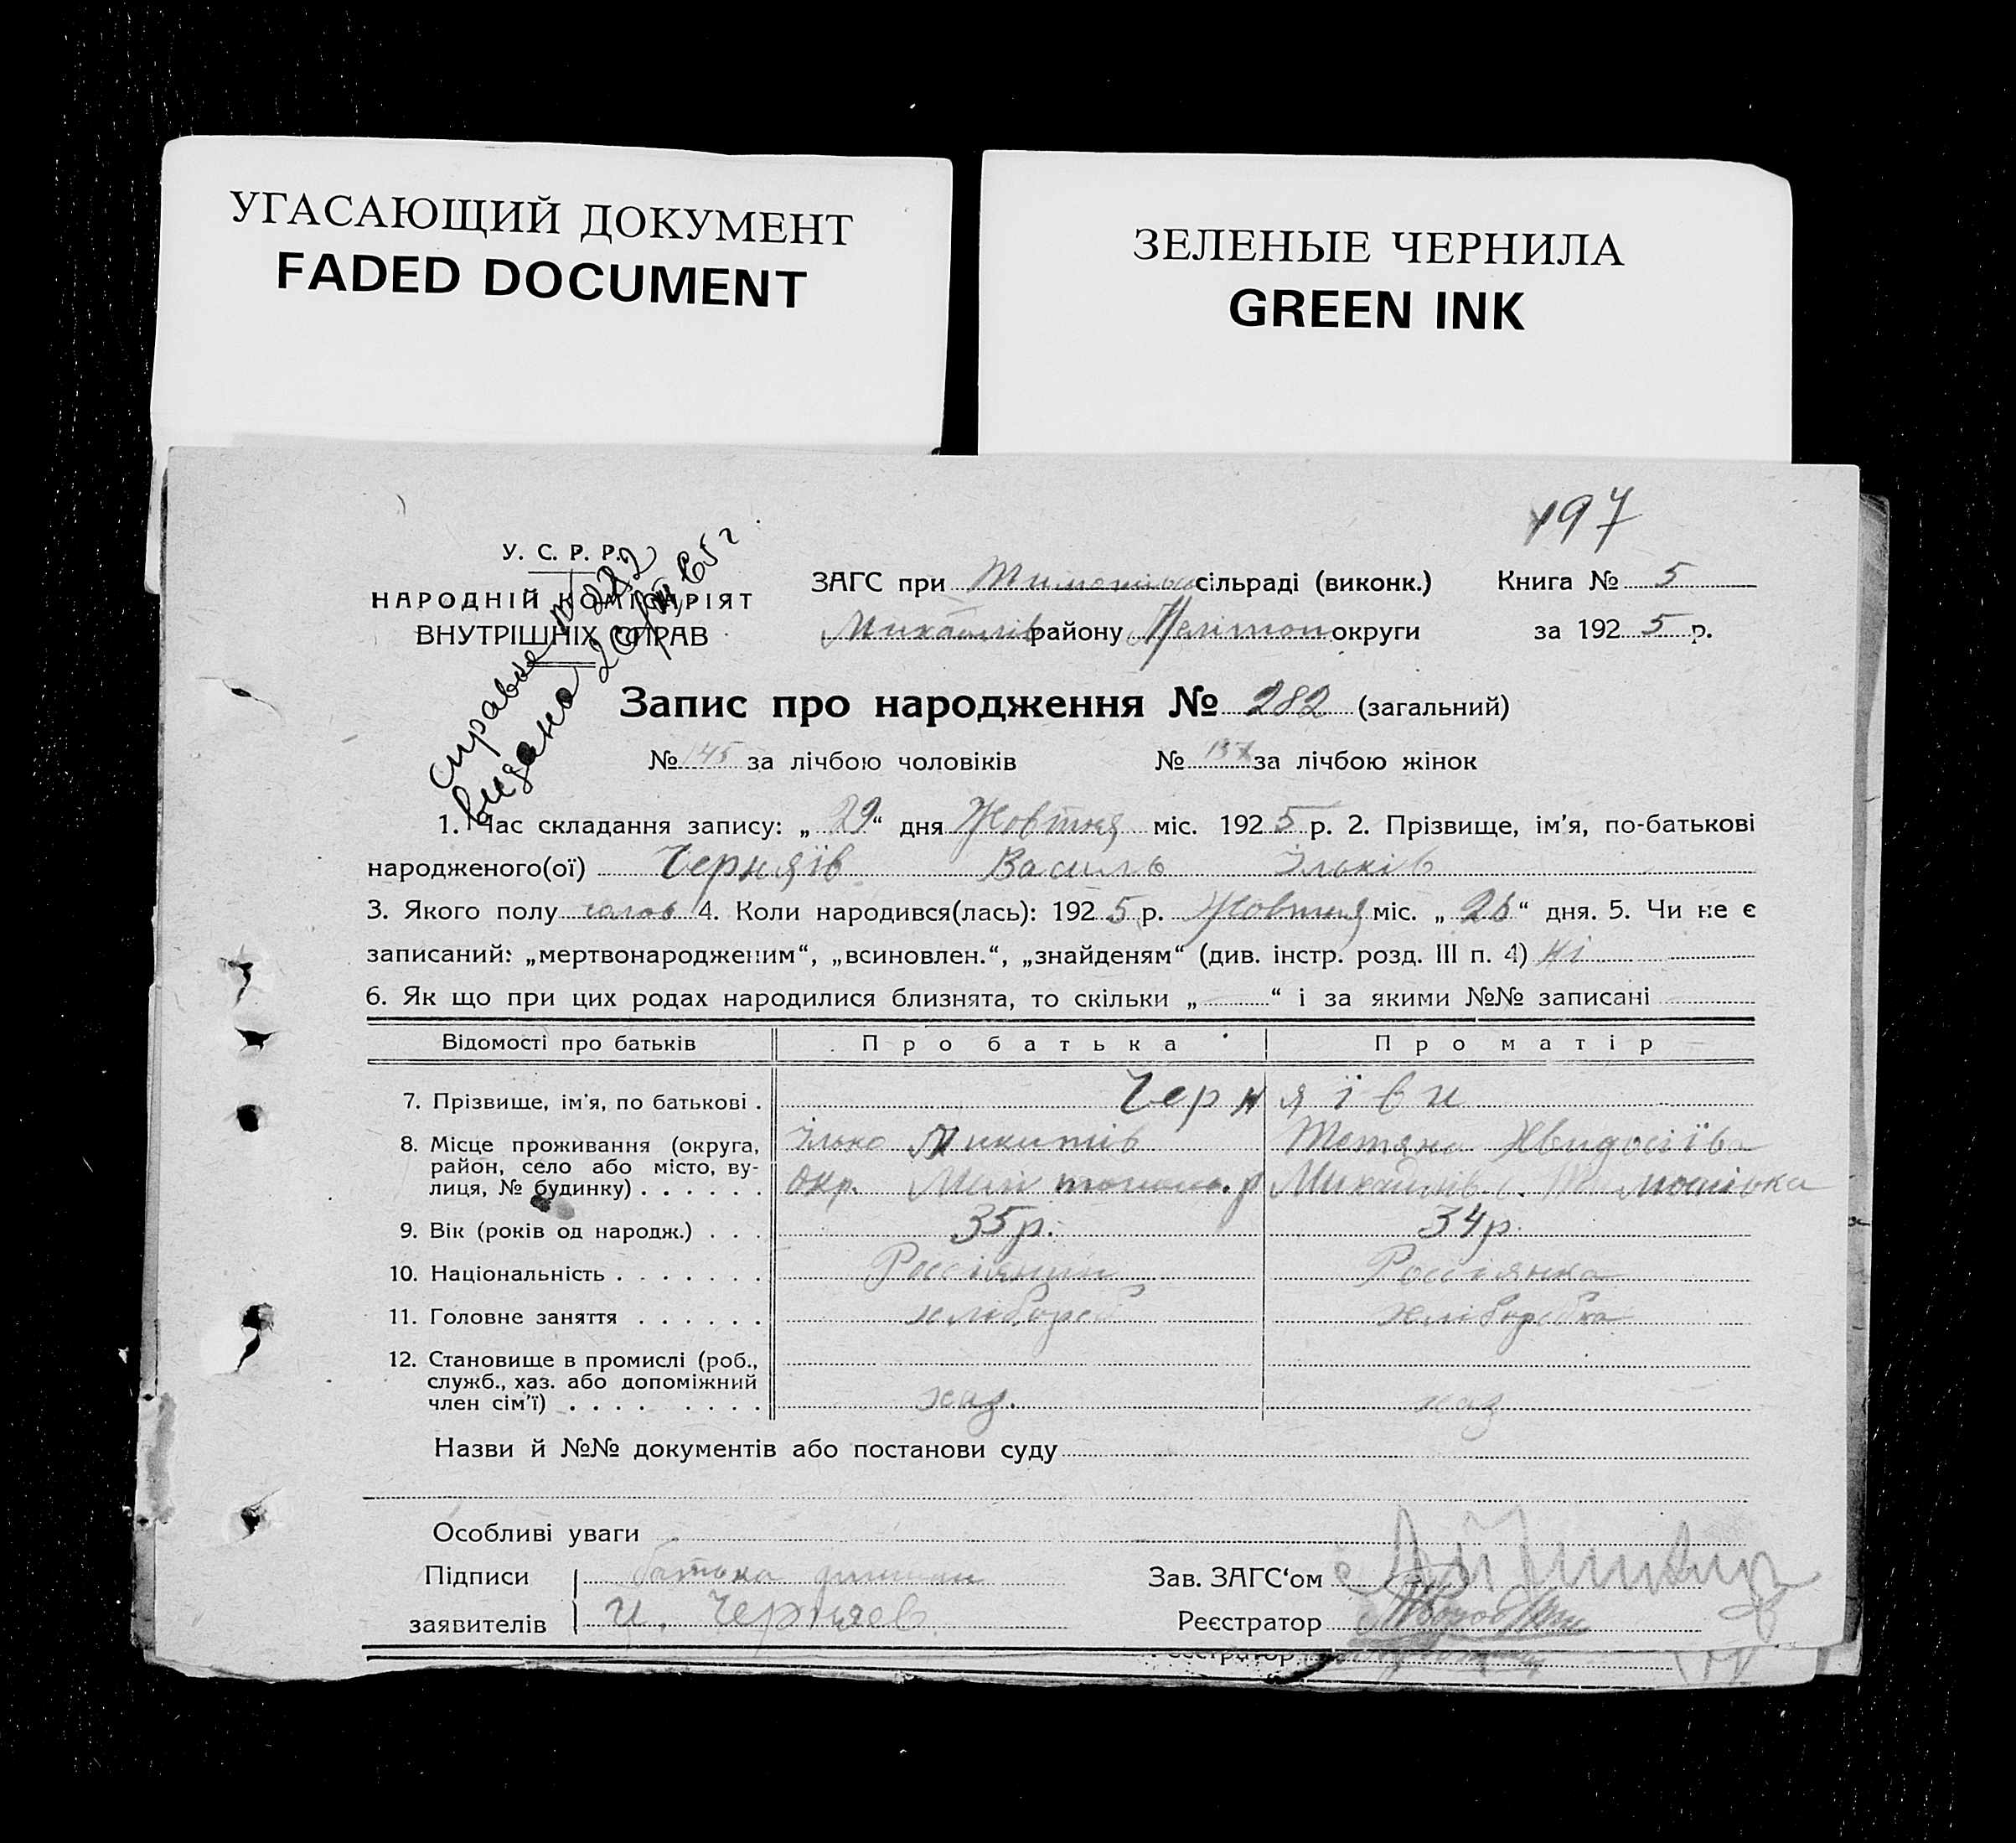 УГАСАЮЩИЙ ДОКУМЕНТ
FADED DOCUMENT
ЗЕЛЕНЫЕ ЧЕРНИЛА
GREEN INK
197
У. С. Р. Р.
НАРОДНІЙ КОМІСАРІЯТ
ВНУТРІШНІХ СПРАВ
справка № 282
видана 65 г
ЗАГС при сільраді (виконк.) Книга № 5
Михайлів району Мелітоп округи за 1925 р.
Запис про народження № 282 (загальний)
№ 145 за лічбою чоловіків № 137 за лічбою жінок
1. Час складання запису: „ 29 “ дня Жовтня міс. 1925 р. 2. Прізвище, ім'я, по-батькові
народженого(ої) Черняїв Василь Ільків
3. Якого полу чолов 4. Коли народився(лась): 1925 р. Жовтня міс. „ 26 “ дня. 5. Чи не є
записаний: „мертвонародженим“, „всиновлен.“, „знайденям“ (див. інстр. розд. III п. 4) ні
6. Як що при цих родах народилися близнята, то скільки „ “ і за якими №№ записані
Відомості про батьків Про батька Про матір
7. Прізвище, ім'я, по батькові . Черняїви
8. Місце проживання (округа, Ілько Микитів Тетяна
район, село або місто, ву-
лиця, № будинку) . . . . . . Окр. р Михайлів с. Тимошівка
9. Вік (років од народж.) . . . 35 р. 34 р.
10. Національність . . . . . . . Россіянин Россіянка
11. Головне заняття . . . . . . хлібороб хліборобка
12. Становище в промислі (роб.,
служб., хаз. або допоміжний
член сім'ї) . . . . . . . . хаз. хаз
Назви й №№ документів або постанови суду
Особливі уваги
Підписи батька Зав. ЗАГС‘ом
заявителів И. Черняев. Реєстратор
Реєстратор